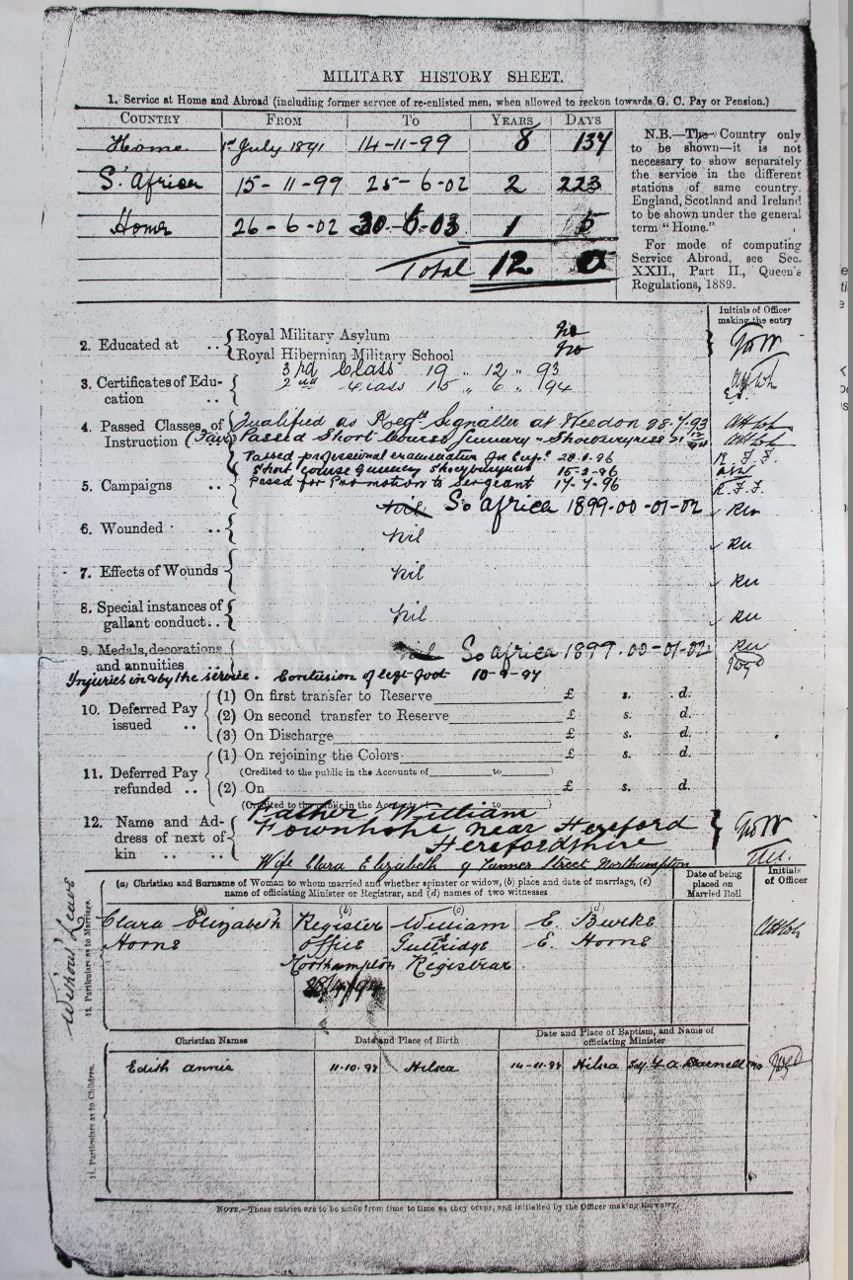 MILITARY HISTORY SHEET.
1. Service at Home and Abroad (including former service of re-enlisted men, when allowed to reckon towards G. C. Pay or Pension.)
COUNTRY FROM TO YEARS DAYS
Home 1st July 1891 14-11-99 8 137
S. Africa 15-11-99 25-6-02 2 223
Home 26-6-02 30-6-03 1 5
Total 12 0
N.B.—The Country only
to be shown—it is not
necessary to show separately
the service in the different
stations of same country.
England, Scotland and Ireland
to be shown under the general
term "Home."
For mode of computing
Service Abroad, see Sec.
XXII., Part II., Queen's
Regulations, 1889.
Initials of Officer
making the entry
2. Educated at .. Royal Military Asylum no
Royal Hibernian Military School no
3. Certificates of Edu-
cation ..
3rd Class 19 " 12 " 93
2nd Class 15 " 6 " 94
4. Passed Classes of
Instruction
Qualified as Regtl Signaller at Weedon 28-7-93
(Fair) Passed Short Course Gunnery - Shoeburyness
Passed professional examination for Corpl 28-1-96
Short course gunnery Shoeburyness 15-2-96
Passed for Promotion to Sergeant 17-7-96
R. F. F.
R. F. F.
5. Campaigns .. nil So Africa 1899-00-01-02
6. Wounded .. nil
7. Effects of Wounds nil
8. Special instances of
gallant conduct .. nil
9. Medals, decorations
and annuities .. nil So Africa 1899-00-01-02
Injuries in or by the service. Contusion of left foot 10-9-97
10. Deferred Pay
issued ..
(1) On first transfer to Reserve £ s. d.
(2) On second transfer to Reserve £ s. d.
(3) On Discharge £ s. d.
11. Deferred Pay
refunded ..
(1) On rejoining the Colors £ s. d.
(Credited to the public in the Accounts of to )
(2) On £ s. d.
(Credited to the public in the Accounts of to )
12. Name and Ad-
dress of next of
kin ..
Father William
Fownhope near Hereford
Herefordshire
Wife Clara Elizabeth 9 Tanner Street Northampton
Without Leave
11. Particulars as to Marriage.
(a) Christian and Surname of Woman to whom married and whether spinster or widow, (b) place and date of marriage, (c)
name of officiating Minister or Registrar, and (d) names of two witnesses
Date of being
placed on
Married Roll
Initials
of Officer
(a) (b) (c) (d)
Clara Elizabeth Register William E. Burke
Horne Office Gutteridge E. Horne
Northampton Registrar
28/4/94
11. Particulars as to Children.
Christian Names Date and Place of Birth Date and Place of Baptism, and Name of
officiating Minister
Edith Annie 11-10-97 Hilsea 14-11-97 Hilsea
NOTE.—These entries are to be made from time to time as they occur, and initialled by the Officer making the entry.